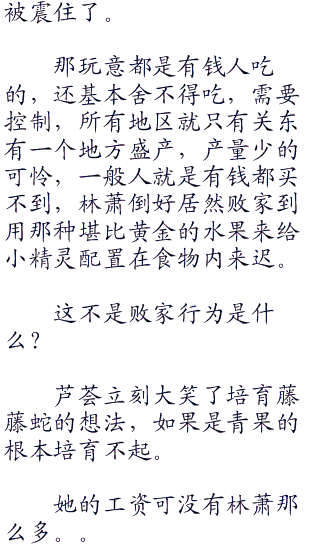 被震住了。
那玩意都是有钱人吃
的，还基本舍不得吃，需要
控制，所有地区就只有关东
有一个地方盛产，产量少的
可怜，一般人就是有钱都买
不到，林萧倒好居然败家到
用那种堪比黄金的水果来给
小精灵配置在食物内来迟。
这不是败家行为是什
么？
芦荟立刻大笑了培育藤
藤蛇的想法，如果是青果的
根本培育不起。
她的工资可没有林萧那
么多。。